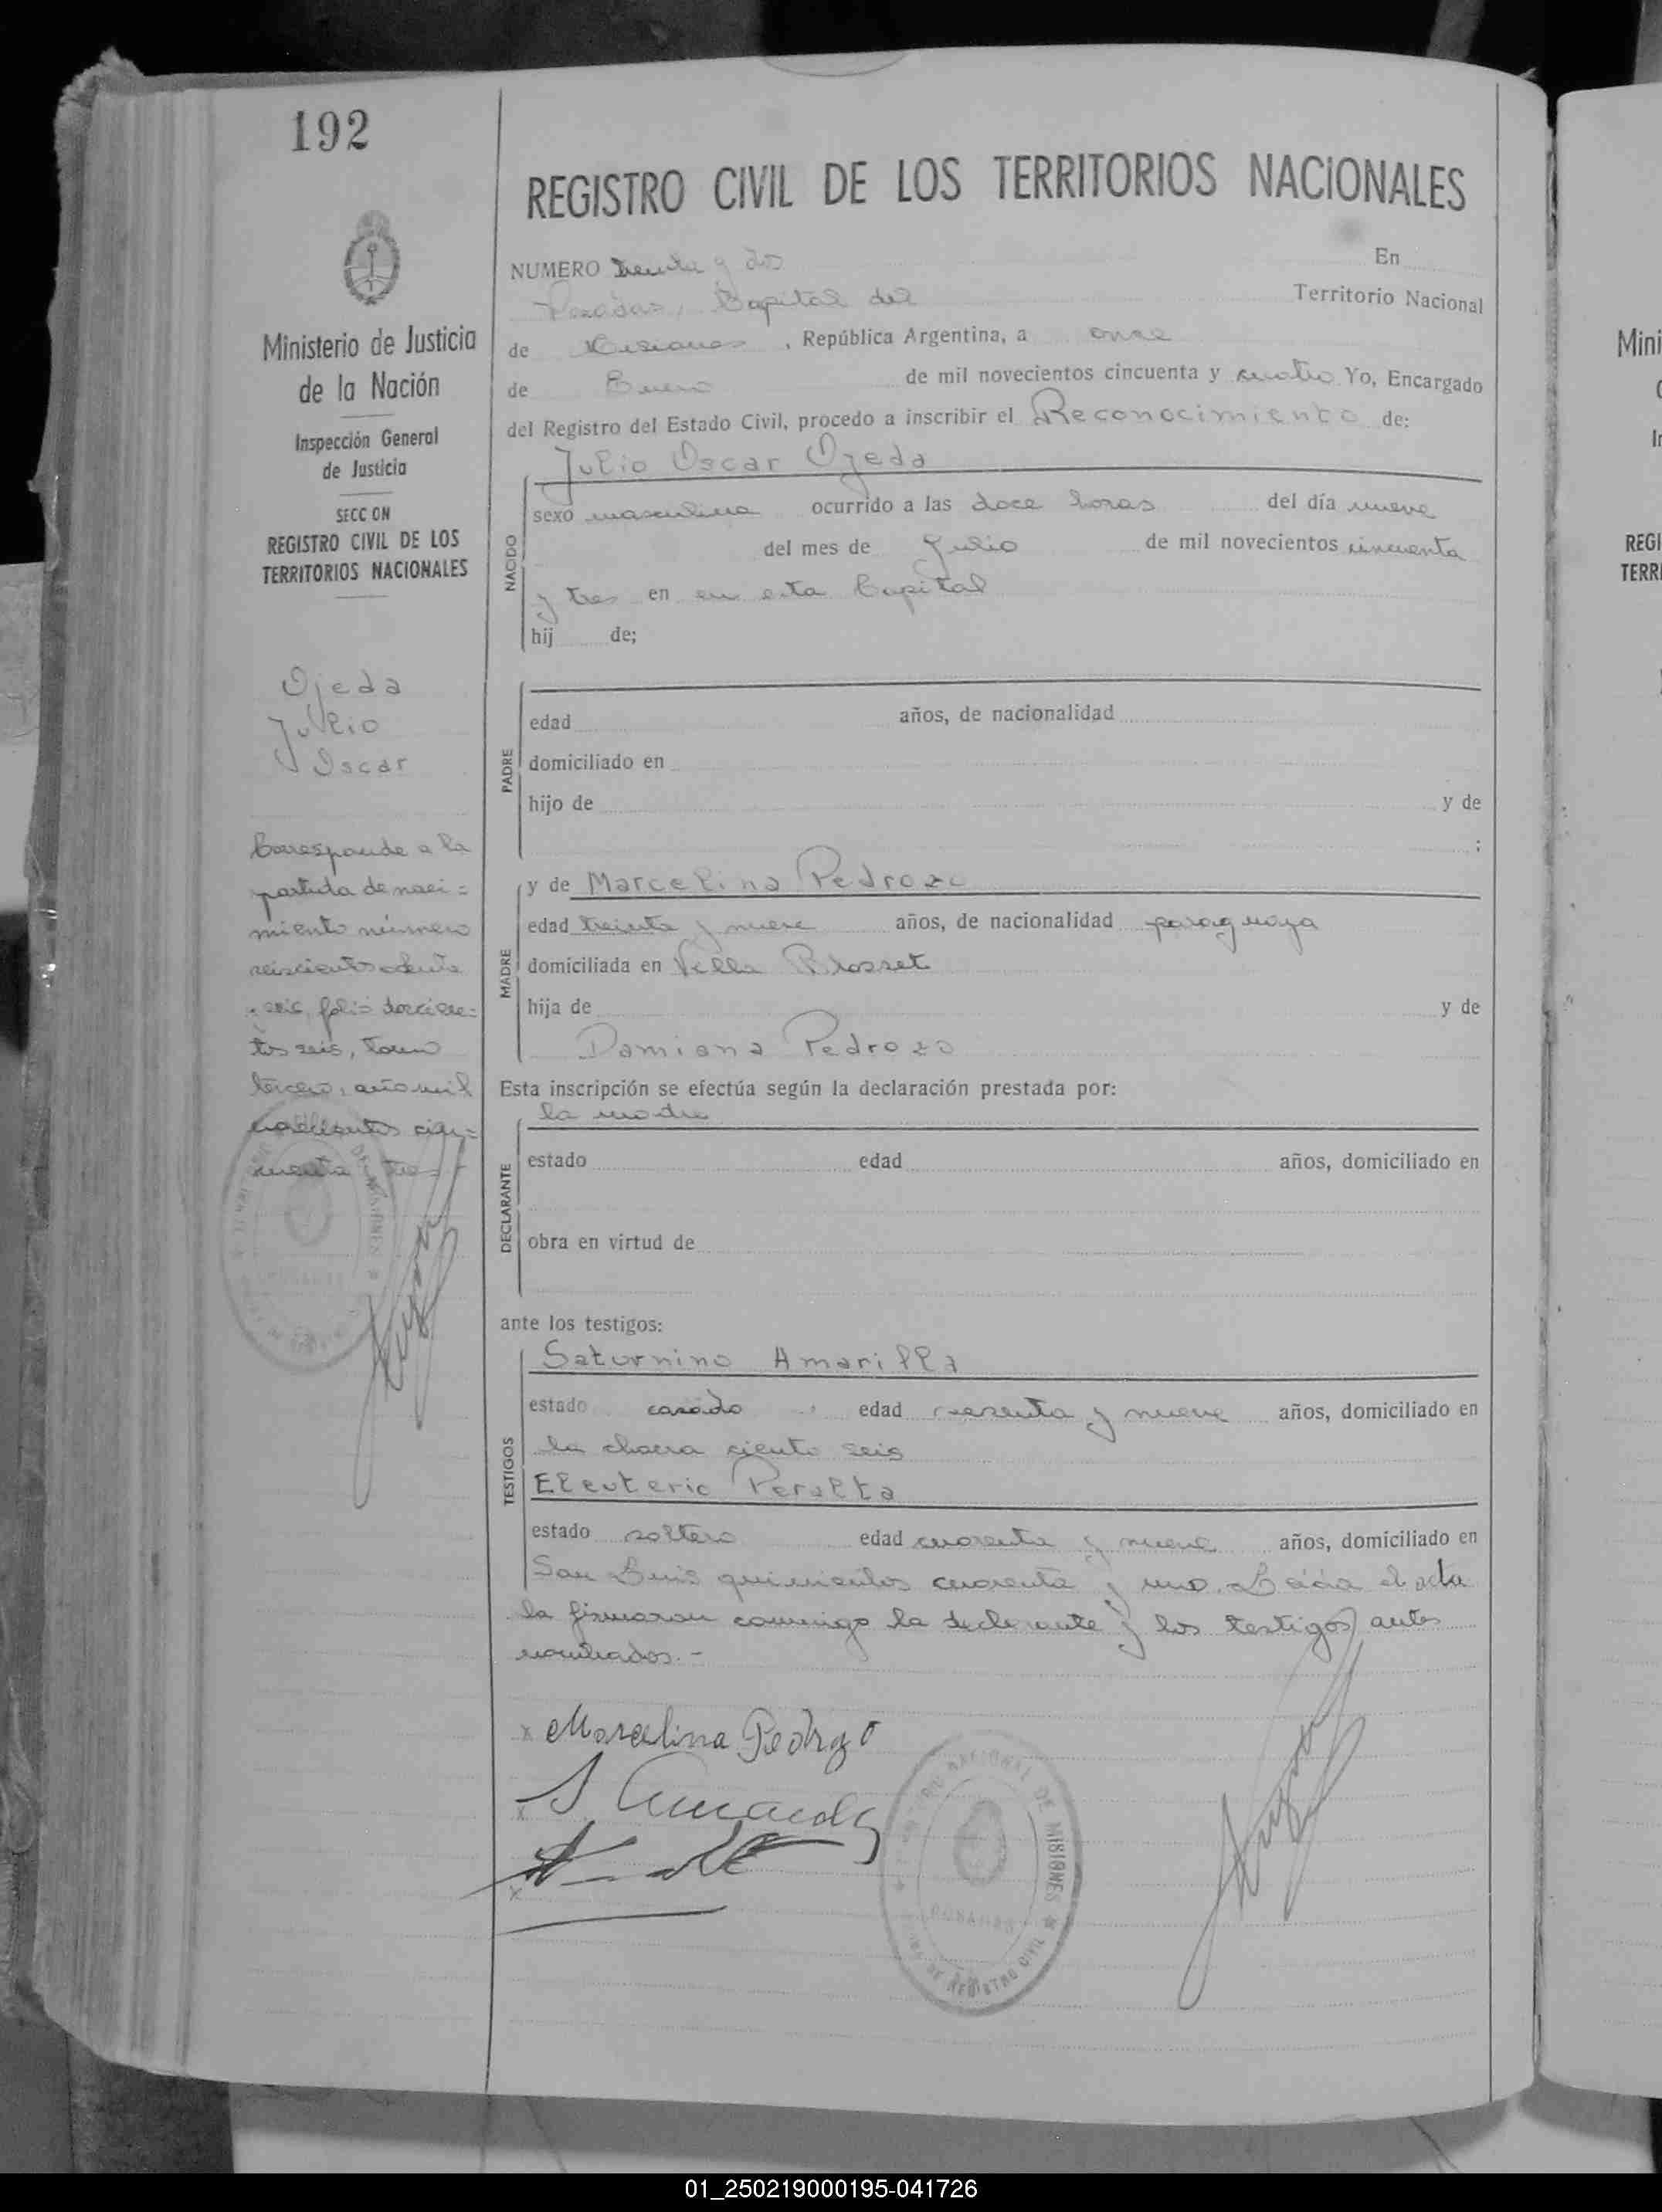 192
REGISTRO CIVIL DE LOS TERRITORIOS NACIONALES
NUMERO treinta y dos En
Posadas, Capital del Territorio Nacional
de Misiones, República Argentina, a once
de Enero de mil novecientos cincuenta y cuatro Yo, Encargado
del Registro del Estado Civil, procedo a inscribir el Reconocimiento de:
Julio Oscar Ojeda
NACIDO
sexo masculino ocurrido a las doce horas del día nueve
del mes de Julio de mil novecientos cincuenta
y tres en en esta Capital
hij de;
PADRE
edad años, de nacionalidad
domiciliado en
hijo de y de
;
MADRE
y de Marcelina Pedrozo
edad treinta y nueve años, de nacionalidad paraguaya
domiciliada en Villa Blosset
hija de y de
Damiana Pedrozo
Esta inscripción se efectúa según la declaración prestada por:
la madre
DECLARANTE
estado edad años, domiciliado en
obra en virtud de
ante los testigos:
TESTIGOS
Saturnino Amarilla
estado casado edad sesenta y nueve años, domiciliado en
la chacra ciento seis
Eleuterio Peralta
estado soltero edad cuarenta y nueve años, domiciliado en
San Luis quinientos cuarenta y uno. Leída el acta
la firmaron conmigo la declarante y los testigos antes
nombrados.-
x Marcelina Pedrozo
x
x
Ministerio de Justicia
de la Nación
Inspección General
de Justicia
SECCION
REGISTRO CIVIL DE LOS
TERRITORIOS NACIONALES
Ojeda
Julio
Oscar
Corresponde a la
partida de naci=
miento número
seiscientos ochenta
y seis, folio doscien=
tos seis, tomo
tercero, año mil
novecientos cin=
cuenta y tres.-
NACIONAL DE MISIONES
POSADAS
DE REGISTRO CIVIL
Mini
REGI
TERRI
01_250219000195-041726